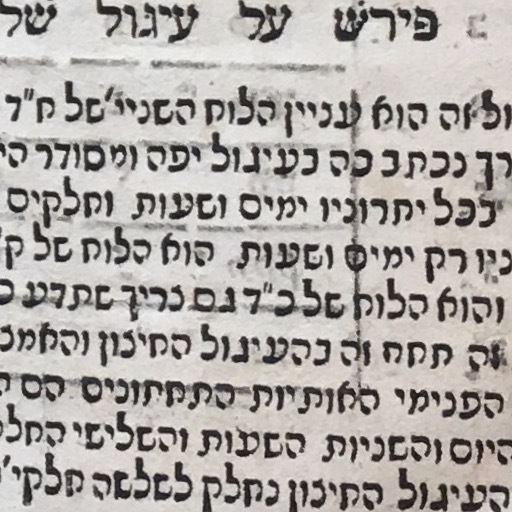 פירש על עיגול של
ולזה הוא עניין הלוח השניי׳ של ח״ד
רך נכתב בה בעיגול יפה ומסודר הי
בכל יתרוניו ימים ושעות וחלקים
ניו רק ימים ושעות הוא הלוח של ק
והוא הלוח של כ״ד גם צריך שתדע כ
זה תחת זה בהעיגול החיצון והאמצ
הפנימי האותיות התחתונים הם ה
היום והשניות השעות והשלישי החלק
העיגול החיצון נחלק לשלשה חלקי׳